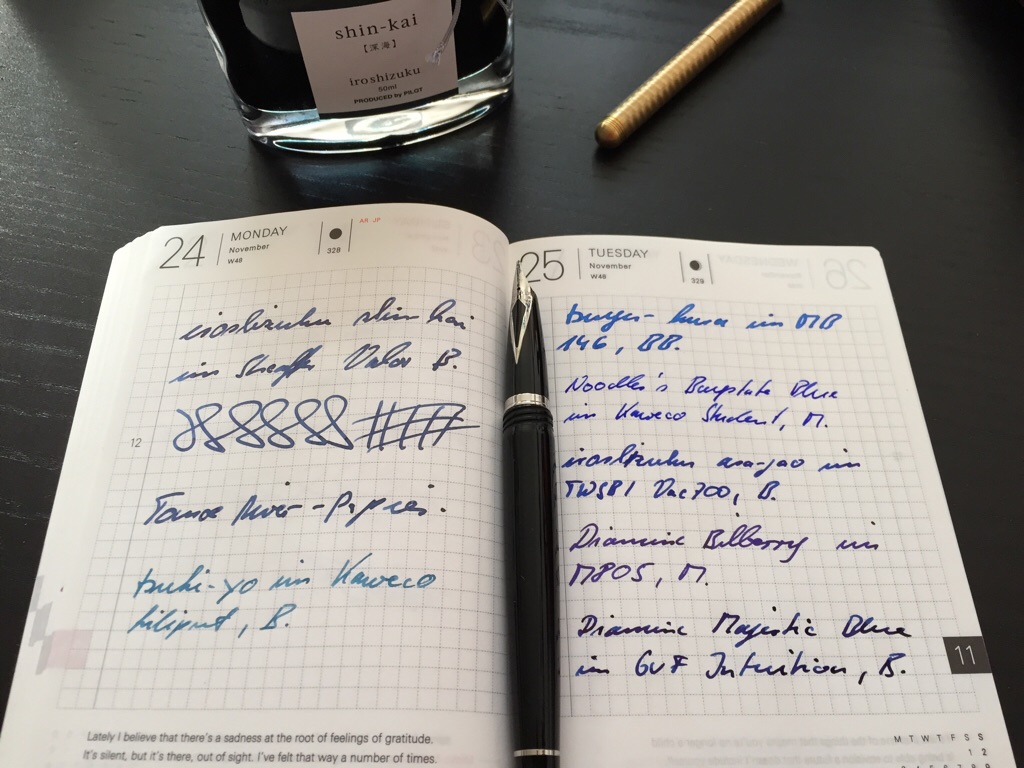 shin-kai
【深海】
iroshizuku
50ml
PRODUCED by PILOT
24 MONDAY
November
W48
328
AR JP
iroshizuku shin-kai
in Sheaffer Valor B.
12
Tomoe River-Papier.
tsuki-yo im Kaweco
Liliput, B.
Lately I believe that there's a sadness at the root of feelings of gratitude.
It's silent, but it's there, out of sight. I've felt that way a number of times.
25 TUESDAY
November
W48
329
tsuyu-kusa im MB
146, BB.
Noodler's Bayplate Blue
im Kaweco Student, M.
iroshizuku asa-gao im
TWSBI Vac700, B.
Diamine Bilberry im
M805, M.
Diamine Majestic Blue
im GvF Intuition, B.
11
M T W T F S S
1 2
3 4 5 6 7 8 9